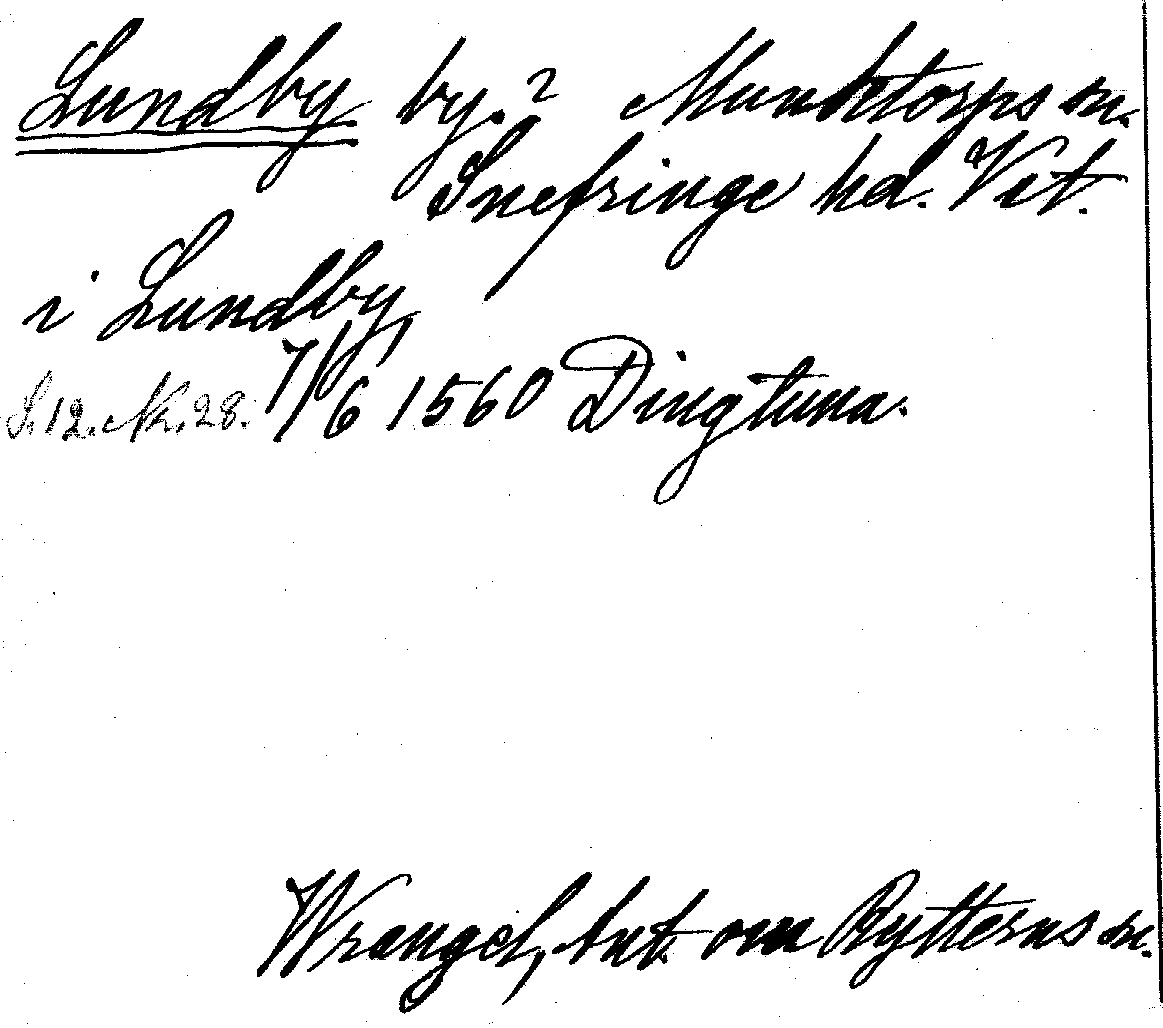 Lundby by.? Munktorps sn.
Snefringe hd. Vst.
i Lundby,
S. 12. Nr. 28. 7/6 1560 Dingtuna.
Wrangel, Ant. om Rytterns sn.